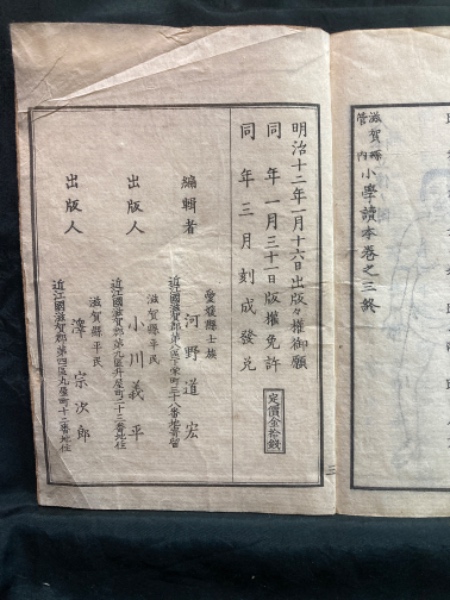 滋賀縣
管內
小學讀本卷之三終
明治十二年一月十六日出版々權御願
同年一月三十一日版權免許
同年三月刻成發兌
定價金拾錢
愛媛縣士族
編輯者 河野道宏
滋賀縣平民
出版人 小川義平
滋賀縣平民
出版人 澤宗次郎
近江國滋賀郡第四區丸屋町十二番地住
三